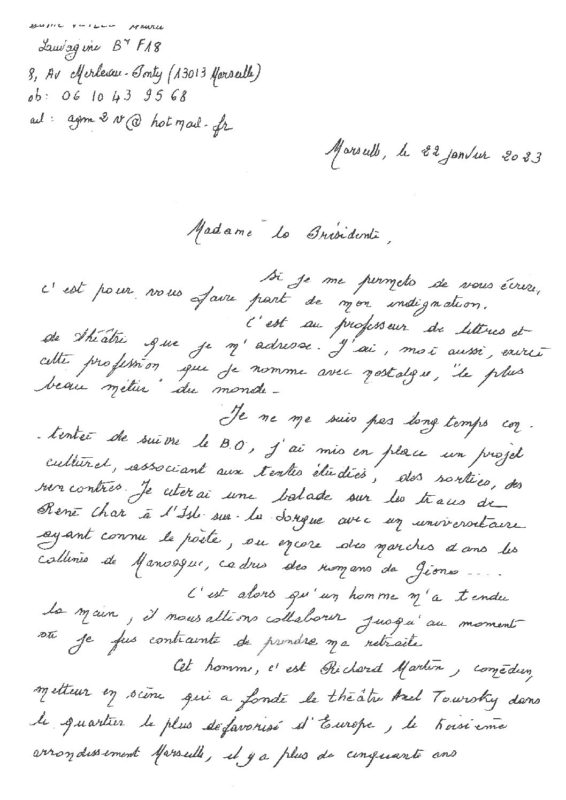 Lauragine Bt F18
8, Av Merleau-Ponty (13013 Marseille)
ob: 06 10 43 95 68
ail : agm2v@hotmail.fr
Marseille, le 22 janvier 2023
Madame la Présidente,
Si je me permets de vous écrire,
c'est pour vous faire part de mon indignation.
C'est au professeur de lettres et
de théâtre que je m'adresse. J'ai, moi aussi, exercé
cette profession que je nomme avec nostalgie, "le plus
beau métier" du monde.
Je ne me suis pas longtemps con-
-tentée de suivre le B.O, j'ai mis en place un projet
culturel, associant aux textes étudiés, des sorties, des
rencontres. Je citerai une balade sur les traces de
René Char à l'Isle-sur-la Sorgue avec un universitaire
ayant connu le poète, ou encore des marches dans les
collines de Manosque, cadres des romans de Giono ....
C'est alors qu'un homme m'a tendu
la main, et nous allions collaborer jusqu'au moment
où je fus contrainte de prendre ma retraite
Cet homme, c'est Richard Martin, comédien,
metteur en scène qui a fondé le théâtre Axel Toursky dans
le quartier le plus défavorisé d'Europe, le troisième
arrondissement Marseille, il y a plus de cinquante ans